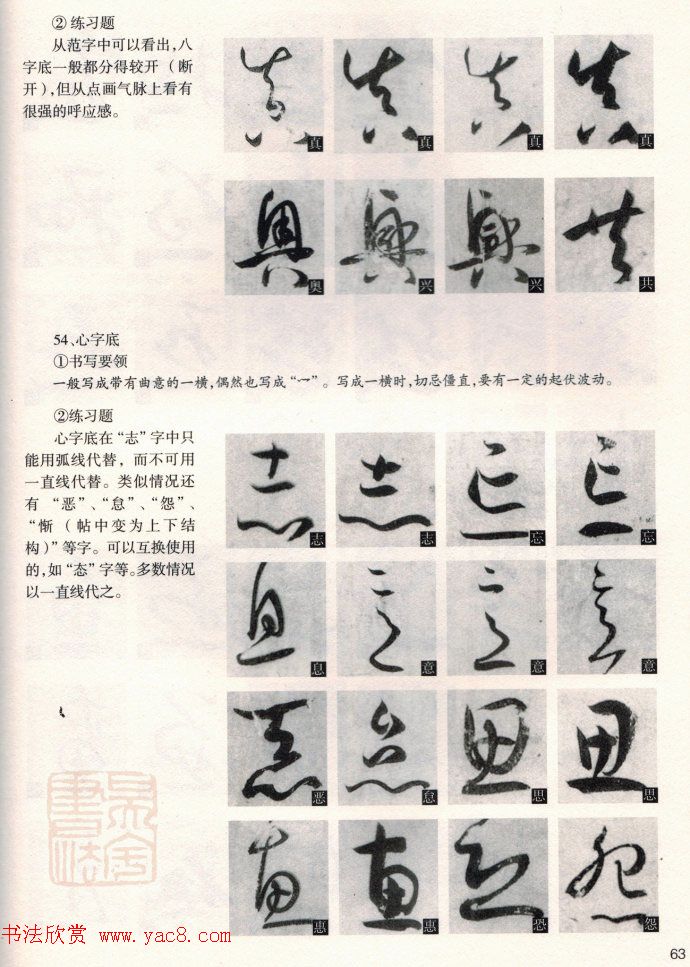 ② 练习题
从范字中可以看出，八
字底一般都分得较开（断
开），但从点画气脉上看有
很强的呼应感。
真 真 真 真
奥 兴 兴 共
54、心字底
①书写要领
一般写成带有曲意的一横，偶然也写成“⺀”。写成一横时，切忌僵直，要有一定的起伏波动。
②练习题
心字底在“志”字中只
能用弧线代替，而不可用
一直线代替。类似情况还
有“恶”、“怠”、“怨”、
“惭（帖中变为上下结
构）”等字。可以互换使用
的，如“态”字等。多数情况
以一直线代之。
志 志 忘 忘
息 意 意 意
恶 怠 思 思
惠 惠 恐 怨
书法欣赏 www.yac8.com
63